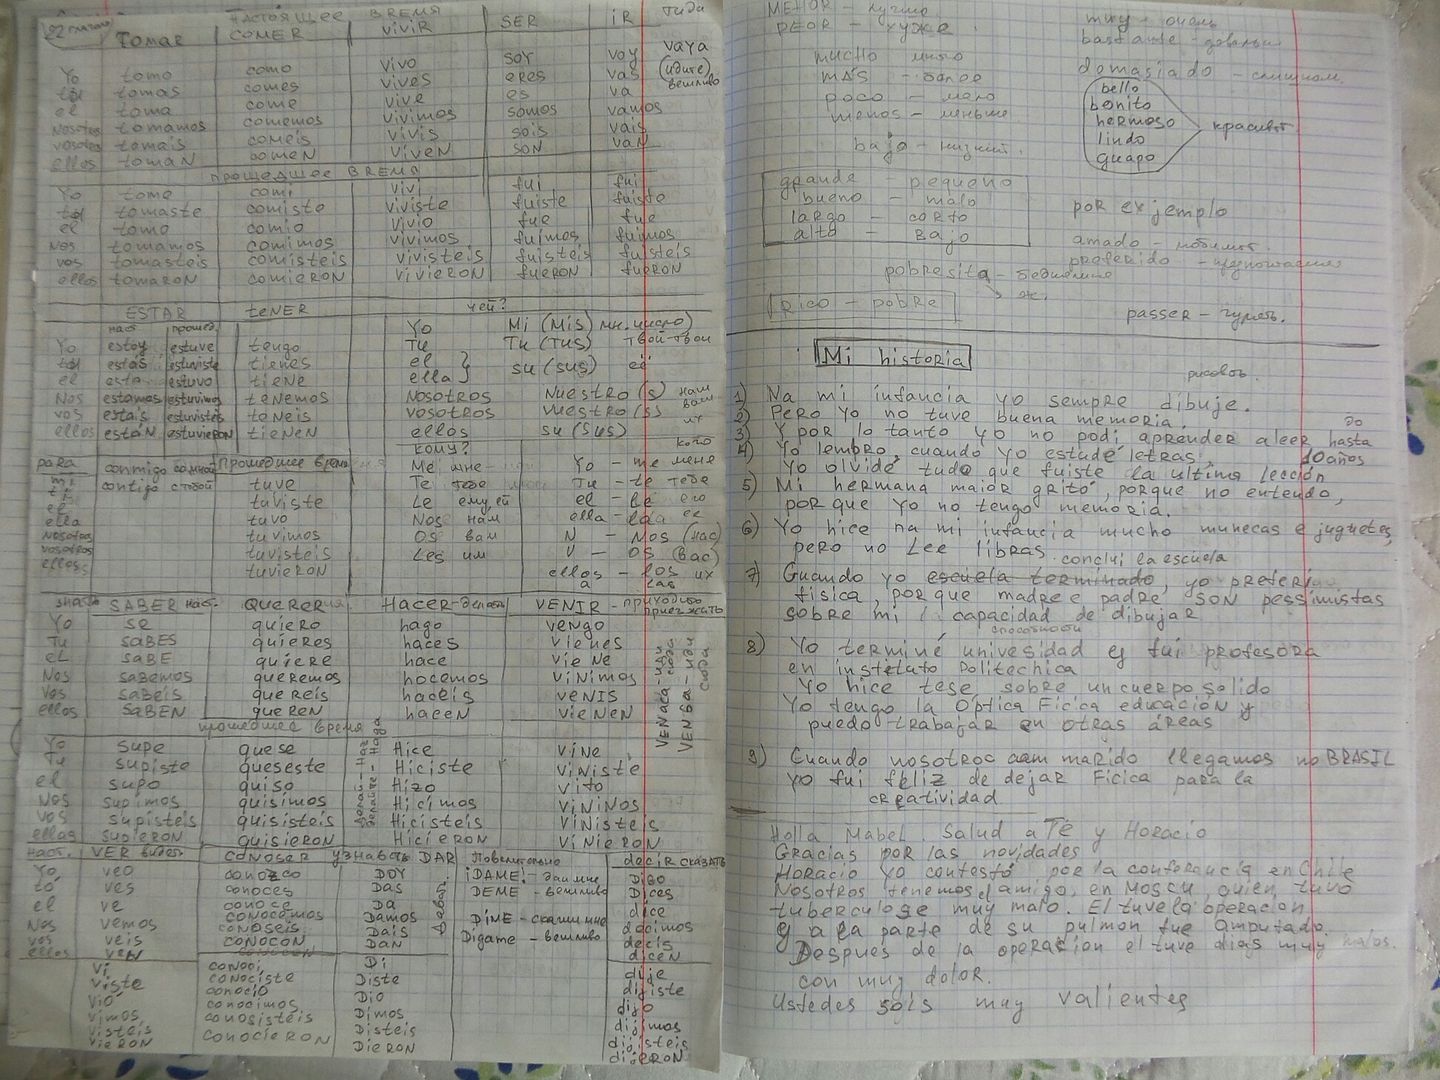 22 глагола Настоящее время
TOMAR COMER VIVIR SER IR
Yo tomo como vivo soy voy vaya
tu tomas comes vives eres vas (идите)
el toma come vive es va вежливо
nosotros tomamos comemos vivimos somos vamos
vosotros tomais comeis vivis sois vais
ellos toman comen viven son van
прошедшее время
Yo tome comi vivi fui fui
tu tomaste comiste viviste fuiste fuiste
el tomo comio vivio fue fue
Nos tomamos comimos vivimos fuimos fuimos
vos tomasteis comisteis vivisteis fuisteis fuisteis
ellos tomaron comieron vivieron fueron fueron
ESTAR teNER чей?
наст прошед. Yo Mi (Mis) мн. число)
Yo estoy estuve tengo Tu Tu (Tus) твой-твои
tu estás estuviste tienes el } su (sus) её
el esta estuvo tiene ella }
Nos estamos estuvimos tenemos Nosotros Nuestro (s) наш
vos estais estuvisteis teneis vosotros vuestro (s) ваш
ellos están estuvieron tienen ellos su (sus) их
para кому? кого
mi conmigo со мной Прошедшее время Me мне Yo - me меня
ti contigo с тобой tuve Te тебе Tu - te тебя
el tuviste Le ему, ей el - le его
ella tuvo Nos нам ella - la ее
nosotros tuvimos OS вам N - Nos (нас)
vosotros tuvisteis Les им V - OS (вас)
ellos tuvieron ellos - los их
a las
знать SABER наст. QUERER HACER-делать VENIR - приходить приезжать
Yo se quiero hago vengo
Tu sabes quieres haces vienes
el sabe quiere hace viene
Nos sabemos queremos hocemos vinimos
Vos sabeis quereis haceis venis
ellos saben queren hacen vienen
прошедшее время
Yo supe quese Hice Vine
Tu supiste queseste Hiciste Viniste
el supo quiso Hizo Vito
Nos supimos quisimos Hicimos Vininos
vos supisteis quisisteis Hicisteis Vinisteis
ellos supieron quisieron Hicieron Vinieron
наст. VER видеть CONOSER узнавать DAR Повелительно decir сказать
Yo veo conozco DOY ¡DAME! - дай мне Digo
tú ves conoces Das DEME - вежливо Dices
el ve conoce Da dice
Nos vemos conocemos Damos DiME - скажи мне decimos
vos veis conoseis Dais Digame - вежливо decis
ellos ven conocon Dan dicen
vi conoci Di dije
viste conociste Diste dijiste
vió conocio Dio dijo
vimos conocimos Dimos dijimos
visteis conosisteis Disteis dijisteis
vieron conocieron Dieron dijeron
MEJOR - лучше muy - очень
PEOR - хуже bastante - довольно
mucho много domasiado - слишком
MAS - более bello
poco - мало bonito
menos - меньше hermoso красивый
bajo - низкий lindo
guapo
grande - pequeno
bueno - malo por exjemplo
largo - corto
alto - Bajo amado - любимый
preferido - предпочитаемый
pobresita - бедненькие
ж.
rico - pobre passer - гулять.
Mi historia
рисовать
1) Na mi infancia yo sempre dibuje.
2) Pero yo no tuve buena memoria. до
3) Y por lo tanto yo no podi aprender a leer hasta
10 años
4) Yo lembro, cuando yo estudé letras,
Yo olvidé tudo que fuiste la ultima lección
5) Mi hermana maior gritó, porque no entendo,
por que Yo no tengo memoria.
6) Yo hice na mi infancia mucho munecas e juguetes,
pero no Lee libras
conclui la escuela
7) Guando yo escuela terminado, yo preferi
fisica, por que madre e padre SON pessimistas
sobre mi capacidad de dibujar
способности
8) Yo terminé univesidad ej fui profesora
en instetuto Politechica
Yo hice tese sobre un cuerpo solido
Yo tengo la Optica Ficica educación y
puedo trabajar en otras áreas
9) Cuando nosotroc cam marido llegamos no BRASIL
yo fui feliz de dejar Ficica para la
creatividad
Holla Mabel. Salud a Té y Horacio
Gracias por las novidades
Horacio yo contestó por la conferencia en Chile
Nosotros tenemos el amigo, en Moscu, quien tuvo
tuberculose muy malo. El tuve la operacion
y a la parte de su pulmon fue amputado.
Despues de la operación el tuve dias muy malos.
con muy dolor.
Ustedes sois muy valientes